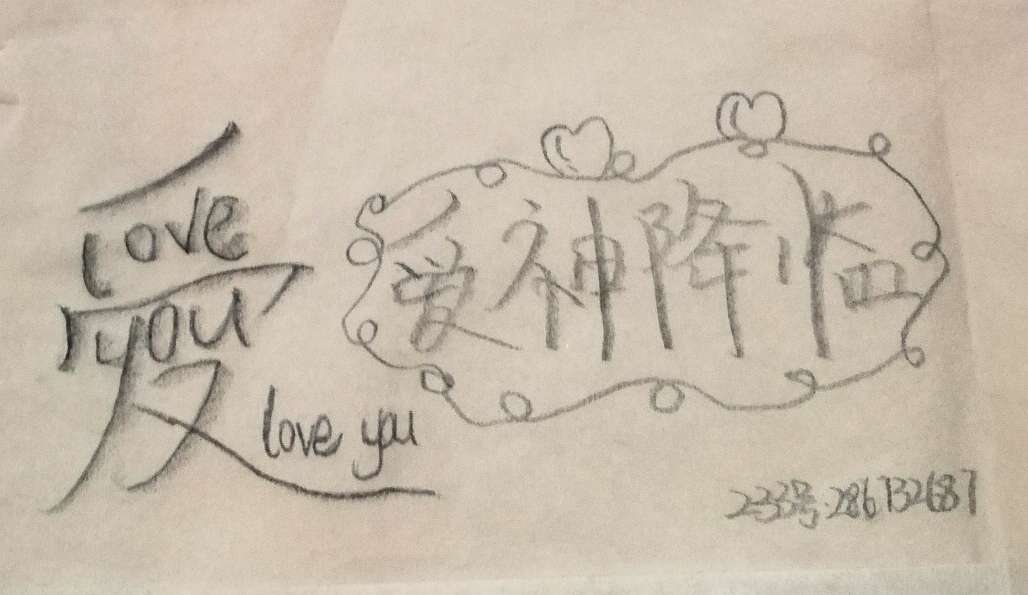 爱
love
you
love you
爱神降临
233号:286732687